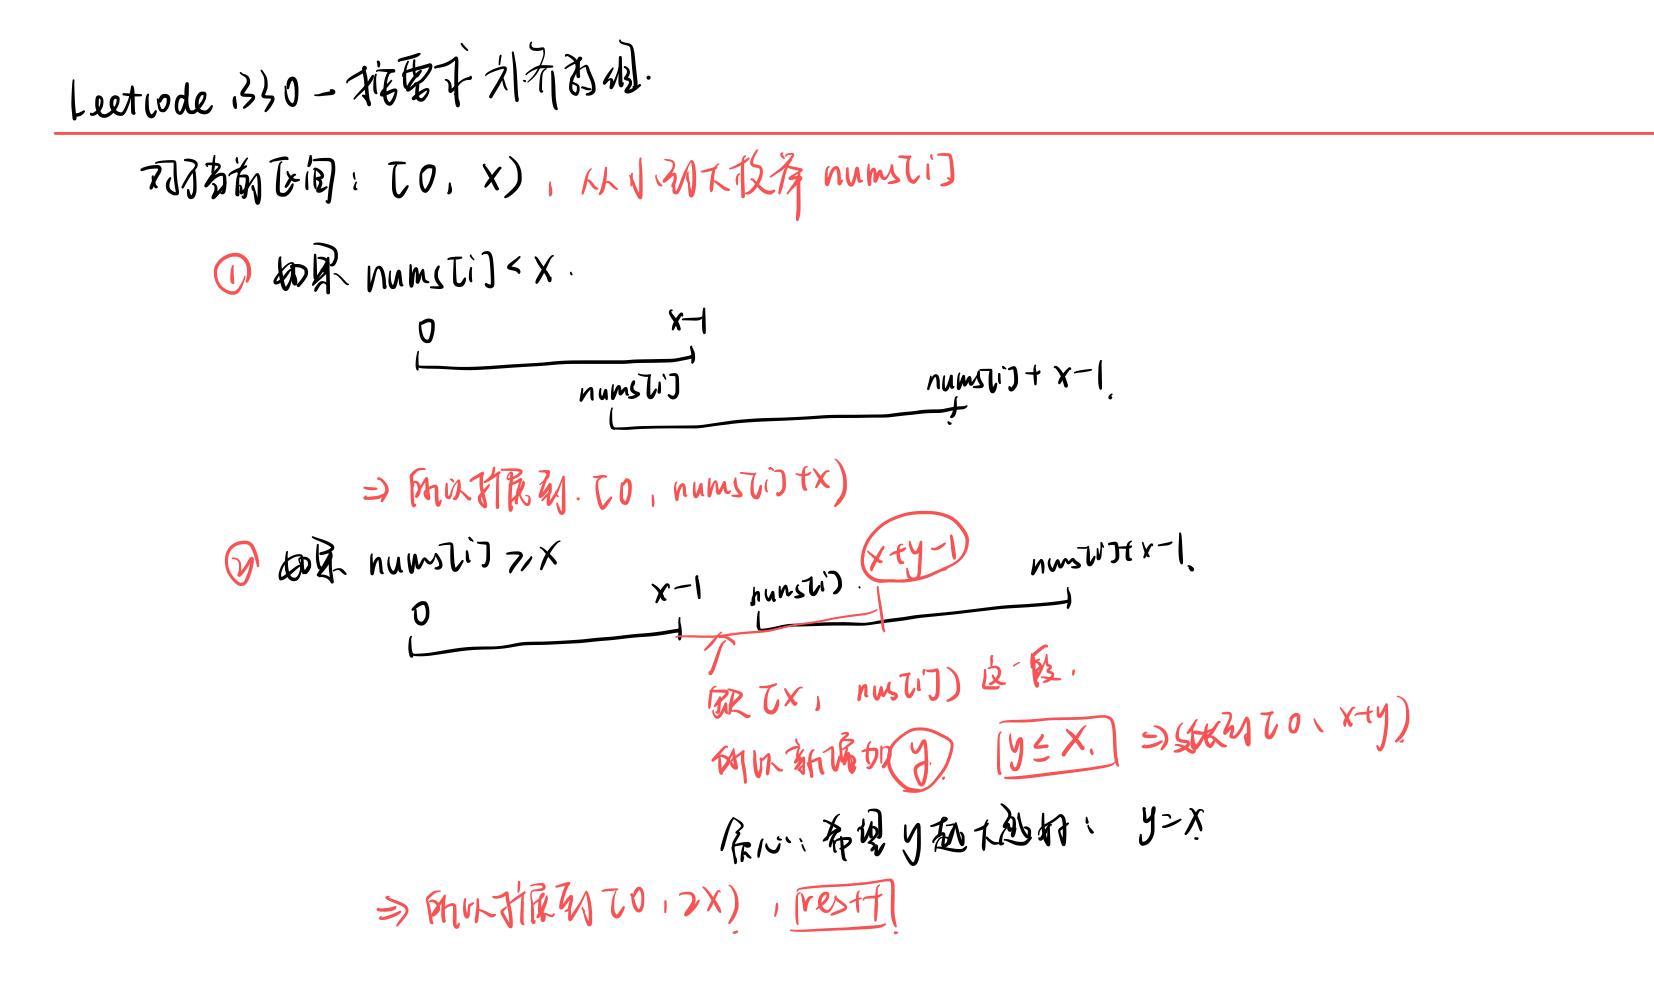 Leetcode 330 - 按要求补齐数组.
对于当前区间: [0, x), 从小到大枚举 nums[i]
① 如果 nums[i] < x.
0 x-1
nums[i] nums[i] + x-1.
⇒ 所以扩展到. [0, nums[i]+x)
② 如果 nums[i] ≥ x
0 x-1 nums[i]. x+y-1 nums[i]+x-1.
缺 [x, nus[i]) 这一段.
所以新增加 y y ≤ x. ⇒ 到 [0, x+y)
贪心: 希望 y 越大越好: y=x
⇒ 所以扩展到 [0, 2x), res++